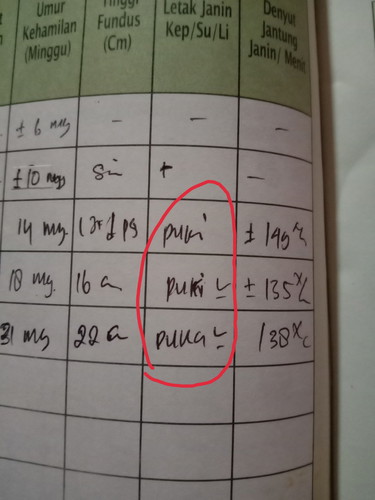 Umur Kehamilan (Minggu) Tinggi Fundus (Cm) Letak Janin Kep/Su/Li Denyut Jantung Janin/ Menit
± 6 mg - - -
± 10 mgg + -
14 mg puki ±
18 mg. 16 puki ± 135
31 mg 22 puka 138